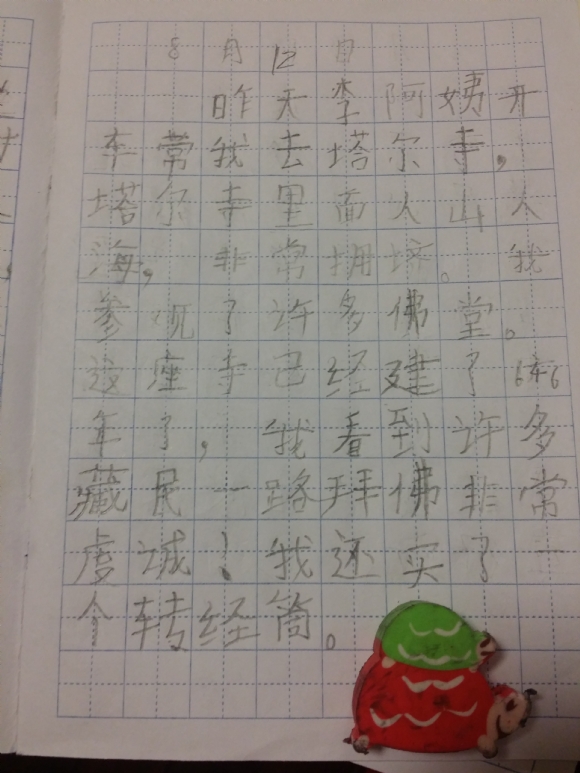 8月12日
昨天李阿姨开
车带我去塔尔寺,
塔尔寺里面人山人
海,非常拥挤。我
参观了许多佛堂。
这座寺已经建了646
年了,我看到许多
藏民一路拜佛非常
虔诚!我还买了一
个转经筒。